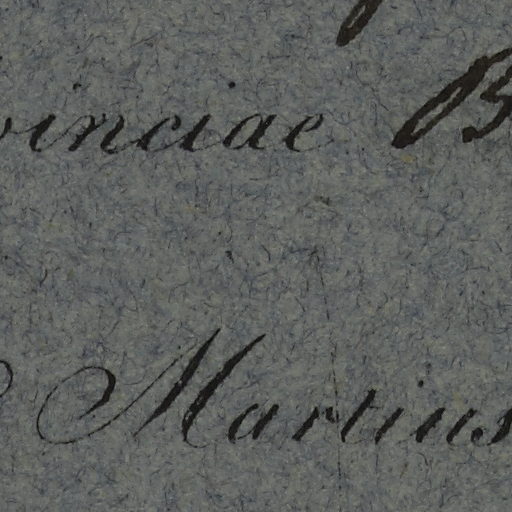 vinciae B
Martius